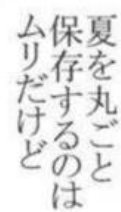 夏を丸ごと
保存するのは
ムリだけど